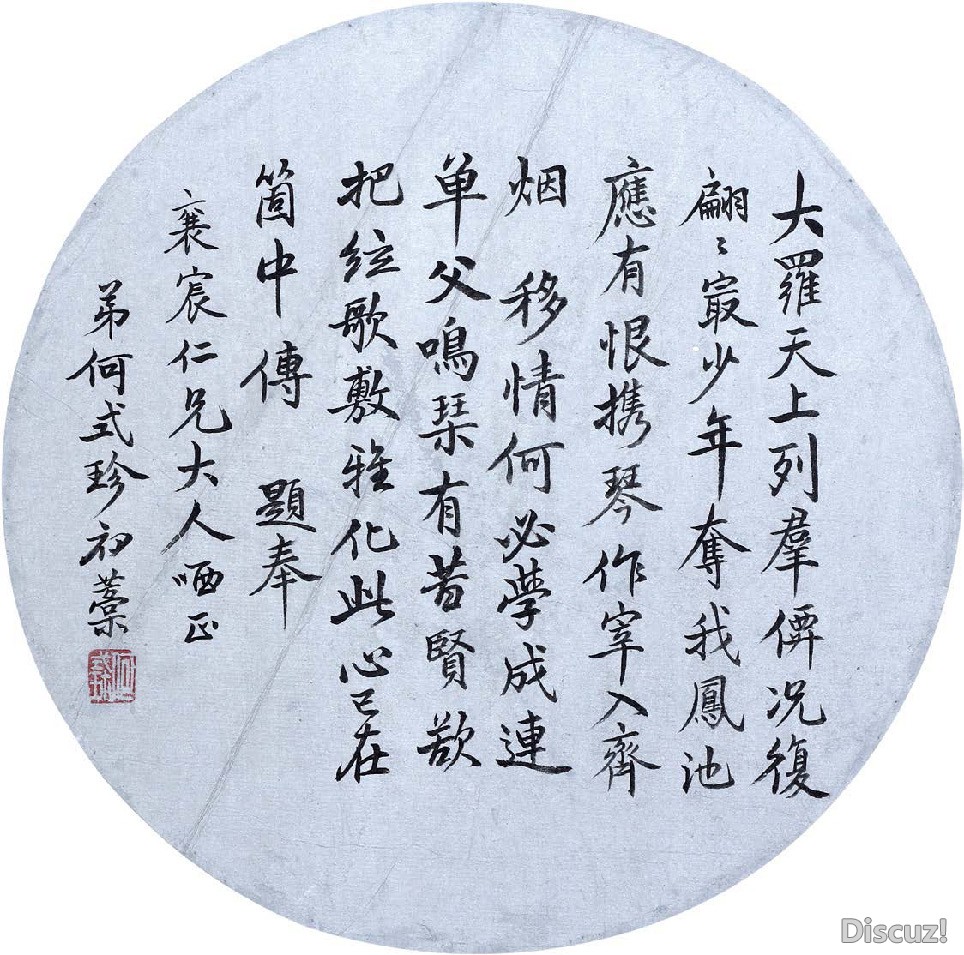 大羅天上列羣僊况復
翩〻冣少年奪我鳳池
應有恨攜琴作宰入齊
烟 移情何必學成連
单父鳴琹有昔賢欲
把絃歌敷雅化此心已在
箇中傳 題奉
襄宸仁兄大人哂正
弟何式珍初藁
Discuz!